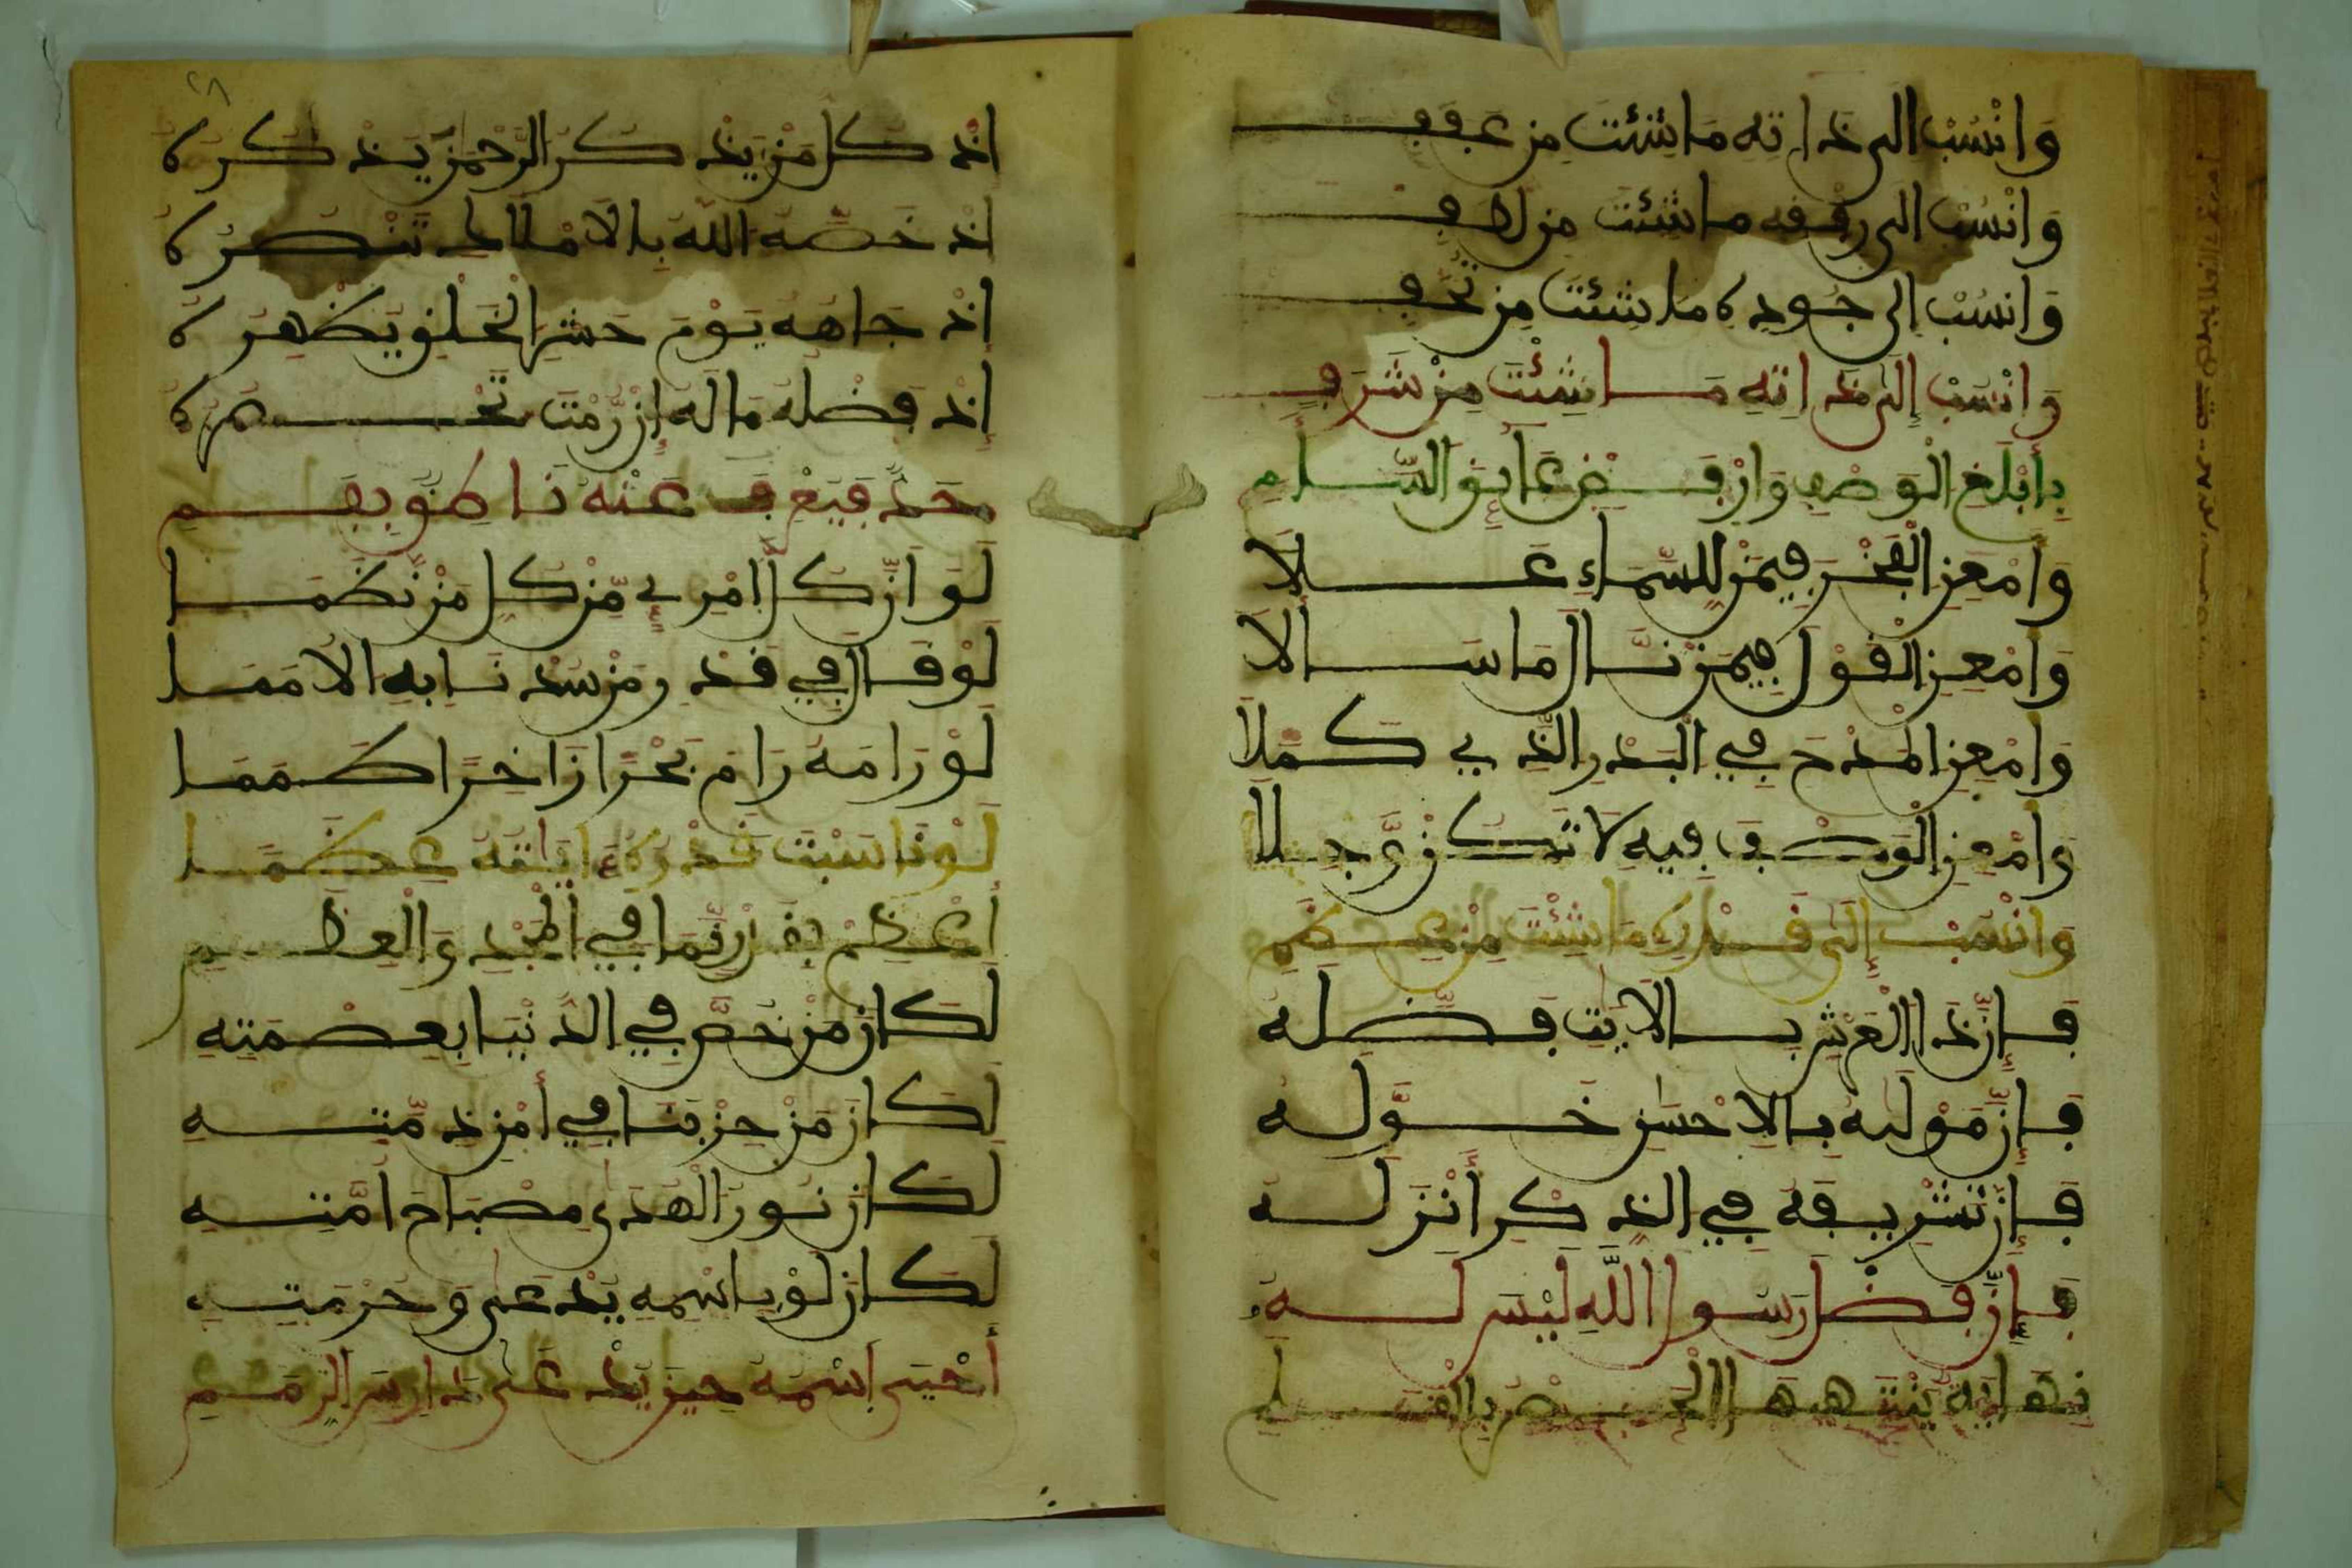 وَانْسُبْ الى ذَاتِه مَا شِئْتَ مِن عَفَفِ
وَانْسُبْ الى رِفْقِه مَا شِئْتَ مِن لطَفِ
وَانْسُبْ إلى جُودِه مَا شِئْتَ مِن تُحَفِ
وَانْسُبْ إِلَى ذَاتِهِ مَا شِئْتَ مِنْ شَرَفِ
وَامْعِنِ الْفَخْرَ فِيمَنْ لِلسَّمَاءِ عَلَا
وَامْعِنِ الْقَوْلَ فِيمَنْ نَالَ مَا سَأَلَا
وَامْعِنِ الْمَدْحَ فِي الْبَدْرِ الَّذِي كَمَلَا
وَامْعِنِ الْوَصْفَ فِيهِ لَا تَكُنْ وَجِلَا
وَانْسُبْ إِلَى قَدْرِهِ مَا شِئْتَ مِنْ عِظَمِ
فَإِنَّ ذَا الْعَرْشِ بِالْآيَتِ فَضَّلَهُ
فَإِنَّ مَوْلَىهُ بِالْاحْسَنِ خَوَّلَهُ
فَإِنَّ تَشْرِيفَهُ فِي الذِّكْرِ أَنْزَلَهُ
فَإِنَّ فَضْلَ رَسُولِ اللَّهِ لَيْسَ لَهُ
اذْ كُلُّ مَنْ يَذْكُرِ الرَّحْمَنَ يَذْكُرُهُ
اذْ خَصَّهُ اللَّهُ بِالْامْلَاكِ تَنْصُرُهُ
اذْ جَاهُهُ يَوْمَ حَشْرِ الْخَلْقِ يُظْهِرُهُ
إِذْ فَضْلُهُ مَا لَهُ إِنْ رُمْتَ تَحْصُرُهُ
حَدٌّ فَيُعْرِبَ عَنْهُ نَاطِقٌ بِفَمِ
لَوَ انَّ كُلَّ امْرِئٍ مِّنْ كُلِّ مَنْ نَظَمَا
لَوْ قَالَ فِي قَدْرِ مَنْ سُدْنَا بِهِ الْامَمَا
لَوْ رَامَهُ رَامَ بَحْرًا زَاخِرًا كَمَمَا
لَوْ نَاسَبَتْ قَدْرَهُ ءَايَاتُهُ عِظَمَا
لَكَانَ مَنْ خُصَّ فِي الدُّنْيَا بِعِصْمَتِهِ
لَكَانَ مِنْ حِزْبِنَا فِي أَمْنِ ذِمَّتِهِ
لَكَانَ نُورَ الْهُدَى مِصْبَاحَ امَّتِهِ
لَكَانَ لَوْ بِاسْمِهِ يُدْعَى وَحُرْمَتِهِ
أَحْيَى اسْمُهُ حِينَ يُدْعَى دَارِسَ الرِّمَمِ